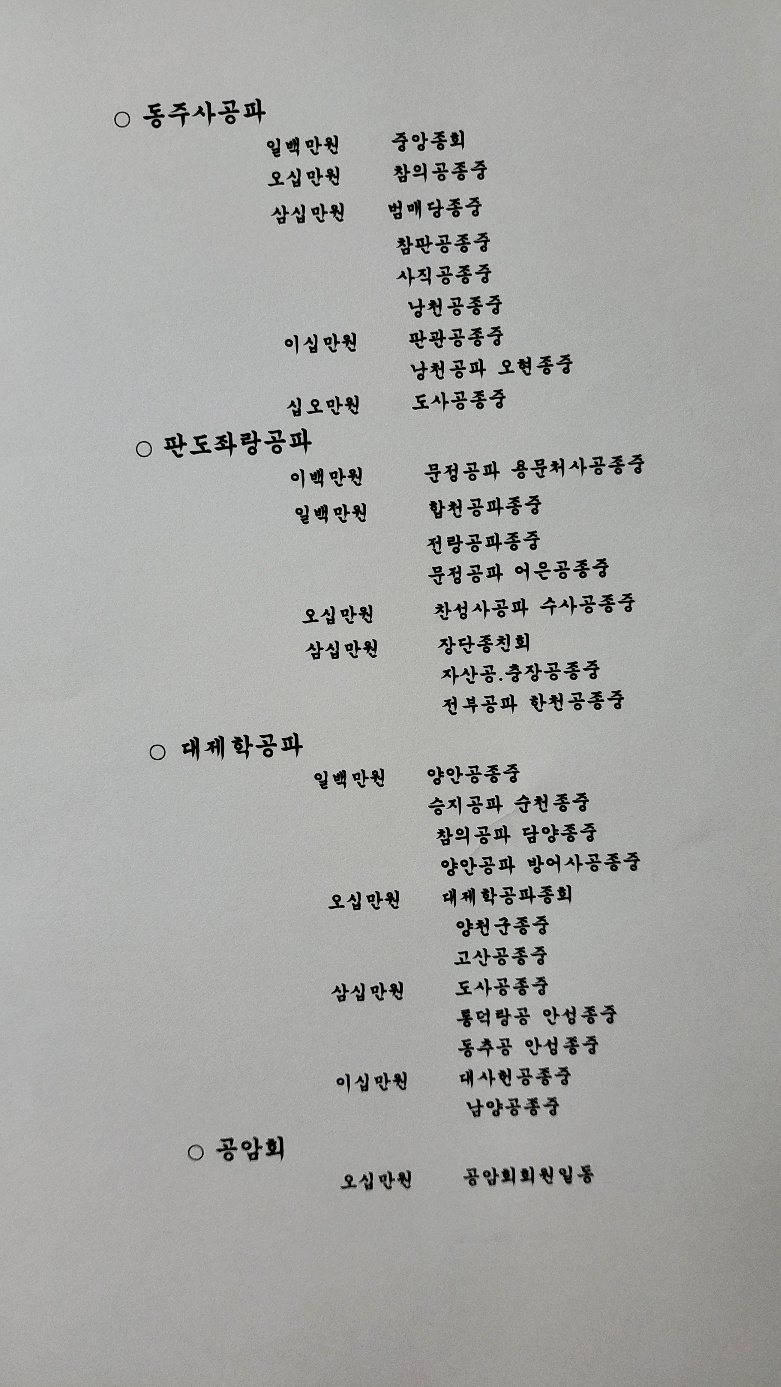 ○ 동주사공파
일백만원 중앙종회
오십만원 참의공종중
삼십만원 범매당종중
참판공종중
사직공종중
낭천공종중
이십만원 판관공종중
낭천공파 오현종중
십오만원 도사공종중
○ 판도좌랑공파
이백만원 문정공파 용문처사공종중
일백만원 합천공파종중
전랑공파종중
문정공파 어은공종중
오십만원 찬성사공파 수사공종중
삼십만원 장단종친회
자산공.충장공종중
전부공파 한천공종중
○ 대제학공파
일백만원 양안공종중
승지공파 순천종중
참의공파 담양종중
양안공파 방어사공종중
오십만원 대제학공파종회
양천군종중
고산공종중
삼십만원 도사공종중
통덕랑공 안성종중
동추공 안성종중
이십만원 대사헌공종중
남양공종중
○ 공암회
오십만원 공암회회원일동